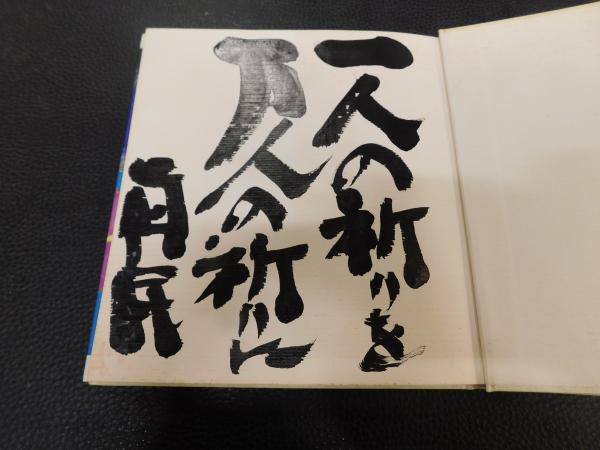 一人の祈りを
万人の祈りに